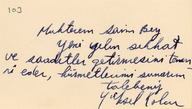 103
Muhterem Saim Bey
Yeni yılın sıhhat
ve saadetler getirmesini temen
ni eder, hürmetlerimi sunarım
talebeniz
Yüksel Polan